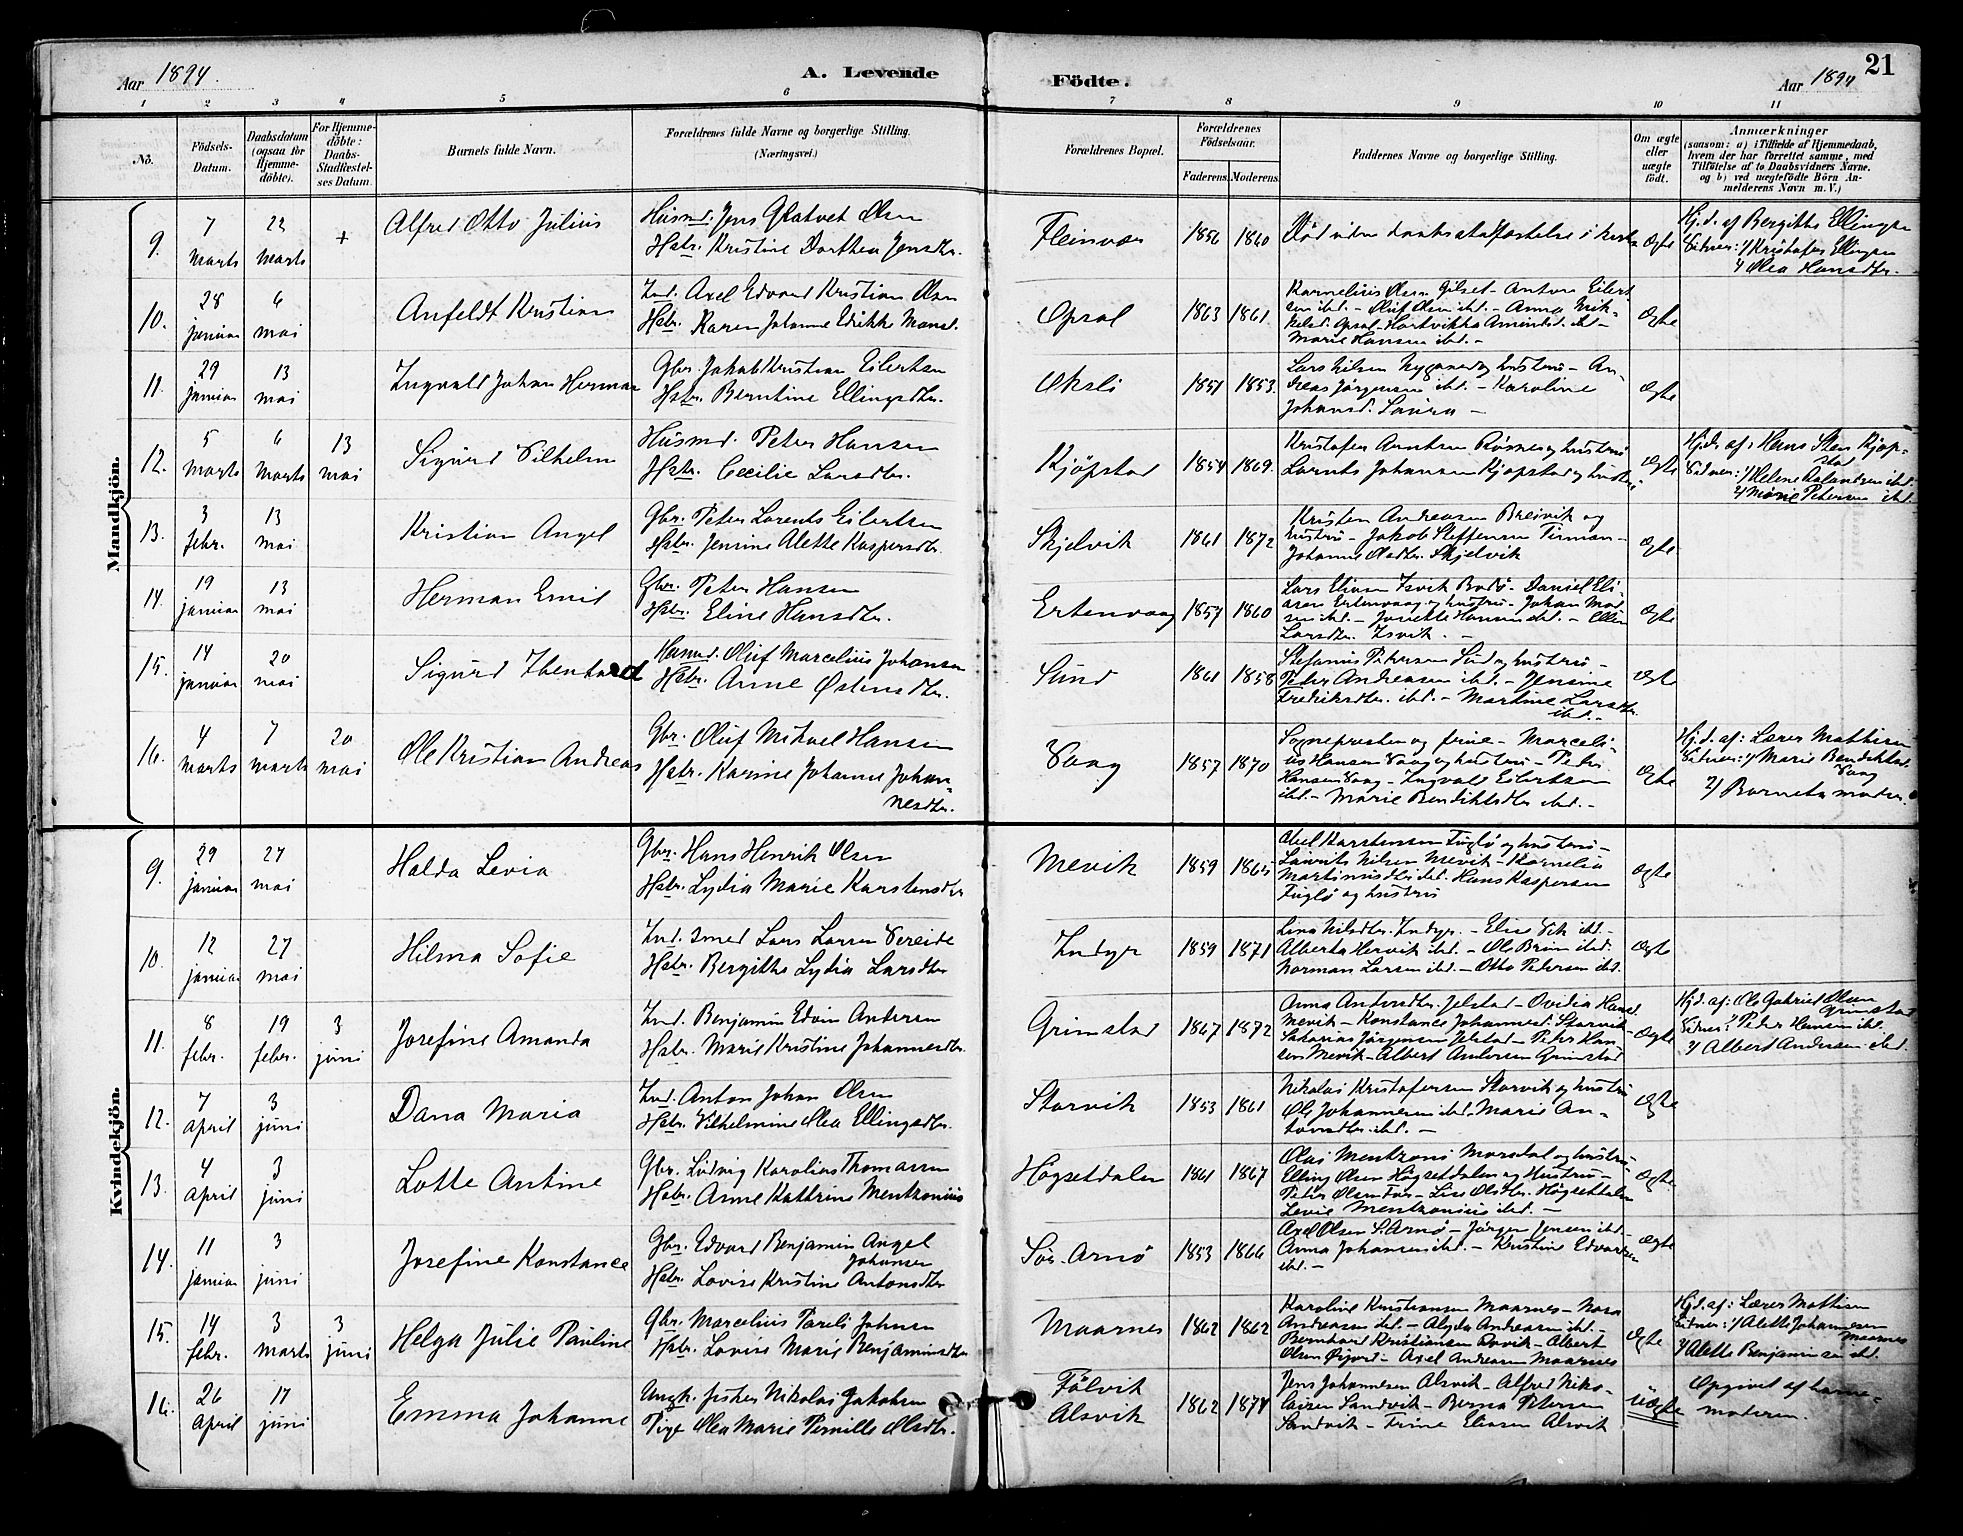 21
Aar 1894.
A. Levende
Födte.
Aar 1894
1 2 3 4 5 6 7 8 9 10 11
No.
Födsels-Datum.
Daabsdatum (ogsaa for Hjemme-döbte).
For Hjemme-döbte: Daabs-Stadfæstel-ses Datum.
Barnets fulde Navn.
Forældrenes fulde Navne og borgerlige Stilling.
(Næringsvei.)
Forældrenes Bopæl.
Forældrenes Födselsaar.
Faderens. Moderens.
Faddernes Navne og borgerlige Stilling.
Om ægte eller uægte födt.
Anmærkninger
(saasom: a) i Tilfælde af Hjemmedaab, hvem der har forrettet samme, med Tilföielse af to Daabsvidners Navne. og b) ved uægtefödte Börn An-melderens Navn m. V.)
Mandkjön.
9. 7 marts 22 marts + Alfred Otto Julius
Husmd. Jens Olsen
Hstr. Kristine Dorthea Jensdtr.
Fleinvær 1856 1860 ægte
Hj.d. af Bergitte Ellingsen
Vidner: 1/ Kristofer Ellingsen
2/ Olea Hansdtr.
10. 28 januar 6 mai Anfeldt Kristian
Ind. Axel Edvard Kristian Olsen
Hstr. Karen Johanne Edrikke Monsd.
Opsal 1863 1861
Kornelius Olsen Gilset - Anton Eilert-
sen ibd. - Oluf Olsen ibd. - Anna Mik-
kelsd. Opsal - Hartvikka Amundsd. ibd. -
Marie Hansen ibd. -
ægte
11. 29 januar 13 mai Ingvald Johan Herman
Gbr. Jakob Kristian Eilertsen
Hstr. Berntine Ellingsdtr.
Oksli 1851 1853
Lars Nilsen Nygaard og hustru - An-
dreas Jörgensen ibd. - Karoline
Johansd. Saura -
ægte
12. 5 marts 6 marts 13 mai Sigurd Vilhelm
Husmd. Peter Hansen
Hstr. Cecilie Larsdtr.
Kjöpstad 1854 1869.
Kristofer Arntsen Røsnes og hustru
Lornts Johansen Kjöpstad og hustru
ægte
Hjd. af: Hans Sten Kjöp-
stad
Vidner: 1/ Helene ibd.
2/ Marie Petersen ibd.
13. 3 febr. 13 mai Kristian Angel
Gbr. Peter Lorents Eilertsen
Hstr. Jensine Alette Kaspersdtr.
Skjelvik 1861 1872
Kristen Andreasen Breivik og
hustru - Jakob Steffensen Firman -
Johanne Olsdtr. Skjelvik
ægte
14. 19 januar 13 mai Herman Emil
Gbr. Peter Hansen
Hstr. Eline Hansdtr.
Ertenvaag 1857 1860
Lars Eliasen Isvik Bodö. Daniel Eli-
asen Ertenvaag og hustru - Johan Mad-
sen ibd. - Jonette Hansen ibd. - Ellen
Larsdtr. Isvik. -
ægte
15. 14 januar 20 mai Sigurd Ibenhard
Husmd. Oluf Marcelius Johansen
Hstr. Anne Østensdtr.
Sund 1861 1858
Stefanus Petersen Sund og hustru -
Peter Andreasen ibd. - Jensine
Fredriksdtr. ibd. - Martine Larsdtr.
ibd. -
ægte
16. 4 marts 7 marts 20 mai Ole Kristian Andreas
Gbr. Oluf Mikael Hansen
Hstr. Karine Johanne Johan-
nesdtr.
Vaag 1857 1870
Sogneprest en og frue - Marceli-
us Hansen Vaag og hustru - Peder
Hansen Vaag - Ingvald Eilertsen
ibd. - Marie Bendiktsdtr ibd. -
ægte
Hj.d. af: Lærer Mathisen
Vidner: 1/ Marie Bendiktsd.
Vaag
2/ Barnets moder.
Kvindekjön.
9. 29 januar 27 mai Halda Levia
Gbr. Hans Henrik Olsen
Hstr. Lydia Marie Karstensdtr
Mevik 1859 1865
Axel Karstensen Fuglö og hustru -
Laurits Nilsen Mevik - Kornelia
Martinusdtr ibd. Hans Kaspersen
Fuglö og hustru
ægte
10. 12 januar 27 mai Hilma Sofie
Ind. Smed Lars Larsen Vereide
Hstr. Bergitte Lydia Larsdtr
Indyr 1859 1871
Lina Nilsdtr. Indyr. - Elise Vik ibd. -
Alberta Hervik ibd. - Ole Brun ibd.
Norman Larsen ibd. - Otto Pedersen ibd.
ægte
11. 8 febr. 19 febr. 3 juni Josefine Amanda
Ind. Benjamin Edvin Andersen
Hstr. Marie Kristine Johannesdtr.
Grimstad 1867 1872
Anna Andersdtr. Jelstad - Ovidia Hansd.
Mevik - Konstance Johannesd. Storvik -
Jörgensen Jelstad - Peter Han-
sen Mevik - Albert Andersen Grimstad
ægte
Hj.d. af: Ole Gabriel Olsen
Grimstad
Vidner: 1/ Peter Hansen ibd.
2/ Albert Andersen ibd.
12. 7 april 3 juni Dana Maria
Ind. Anton Johan Olsen
Hstr. Vilhelmine Olea Ellingsdtr.
Storvik 1853 1861
Nikolai Kristofersen Storvik og hustru
Ole Johannesen ibd. - Marie An-
tonsdtr. ibd. -
ægte
13. 4 april 3 juni Lotte Antine
Gbr. Ludvig Karolius Thomassen
Hstr. Anne Kathrine Mentzonius
Högsetdalen 1861 1867
Olai Mentzoni Morsdal og hustru
Elling Olsen Högsetdalen og Hustru -
Peter Olsen For - Lise Olsdtr. Högsetdalen
Levie Mentzonius ibd. -
ægte
14. 11 januar 3 juni Josefine Konstance
Gbr. Edvard Benjamin Angel
Johansen
Hstr. Lovise Kristine Antonsdtr
Sör-Arnö 1853 1866
Axel Olsen S. Arnö - Jörgen Jensen ibd. -
Anna Johansen ibd. - Kristine Edvardsen
ibd. -
ægte
15. 14 febr. 3 marts 3 juni Helga Julie Pauline
Gbr. Marcelius Pareli Johnsen
Hstr. Lovise Marie Benjaminsdtr
Maarnes 1862 1862
Karoline Kristiansen Maarnes - Nora
Andreasen ibd. - Alyda Andreasen ibd. -
Bernhard Kristiansen - Albert
Olsen Øijord - Axel Andreasen Maarnes
ægte
Hj.d. af: Lærer Mathisen
Vidner: 1/ Alette Johannesen
Maarnes
2/ Alette Benjaminsen ibd.
16. 26 april 17 juni Emma Johanne
Ungk. fisker Nikolai Jakobsen
Pige Olea Marie Pernille Olsdtr.
Fölvik
Alsvik
1862 1874
Jens Johannesen Alsvik - Alfred Niko-
laisen Sandvik - Berna Petersen
Sandvik - Trine Eliasen Alsvik
uægte
Opgivet af barne-
moderen.